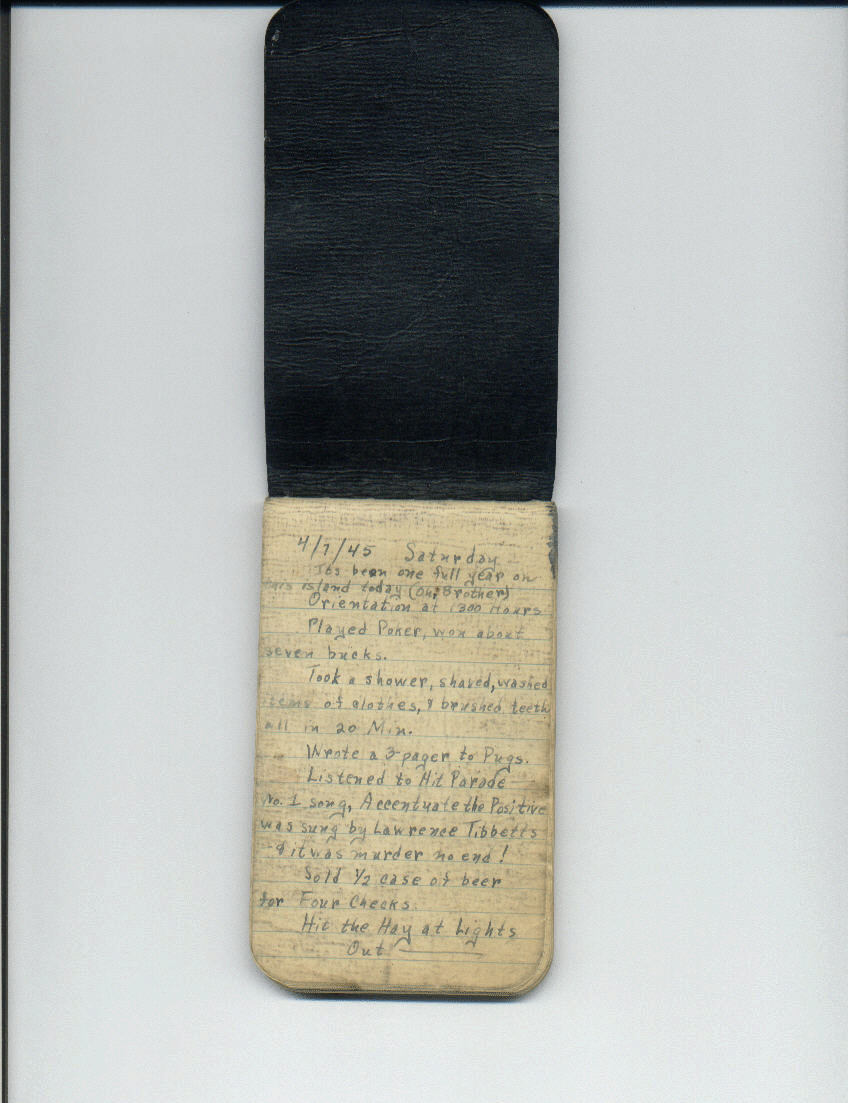 4/7/45 Saturday
Its been one full year on
this island today (Oh, Brother)
Orientation at 1300 Hours
Played Poker, won about
seven bucks.
Took a shower, shaved, washed
items of clothes, & brushed teeth
all in 20 Min.
Wrote a 3-pager to Pugs.
Listened to Hit Parade
No. 1 song, Accentuate the Positive
was sung by Lawrence Tibbetts
& it was murder no end!
Sold 1/2 case of beer
for Four Checks.
Hit the Hay at Lights
Out